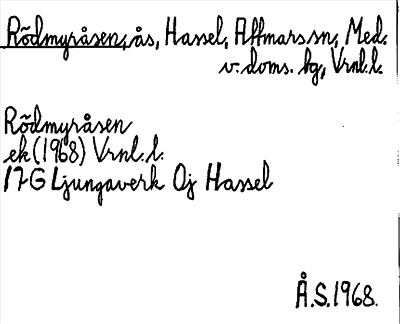 Rödmyråsen, ås, Hassel, Attmars sn, Med.
v. doms. bg, Vrnl. l.
Rödmyråsen
ek (1968) Vrnl. l.
17 G Ljungaverk Oj Hassel
Å.S. 1968.